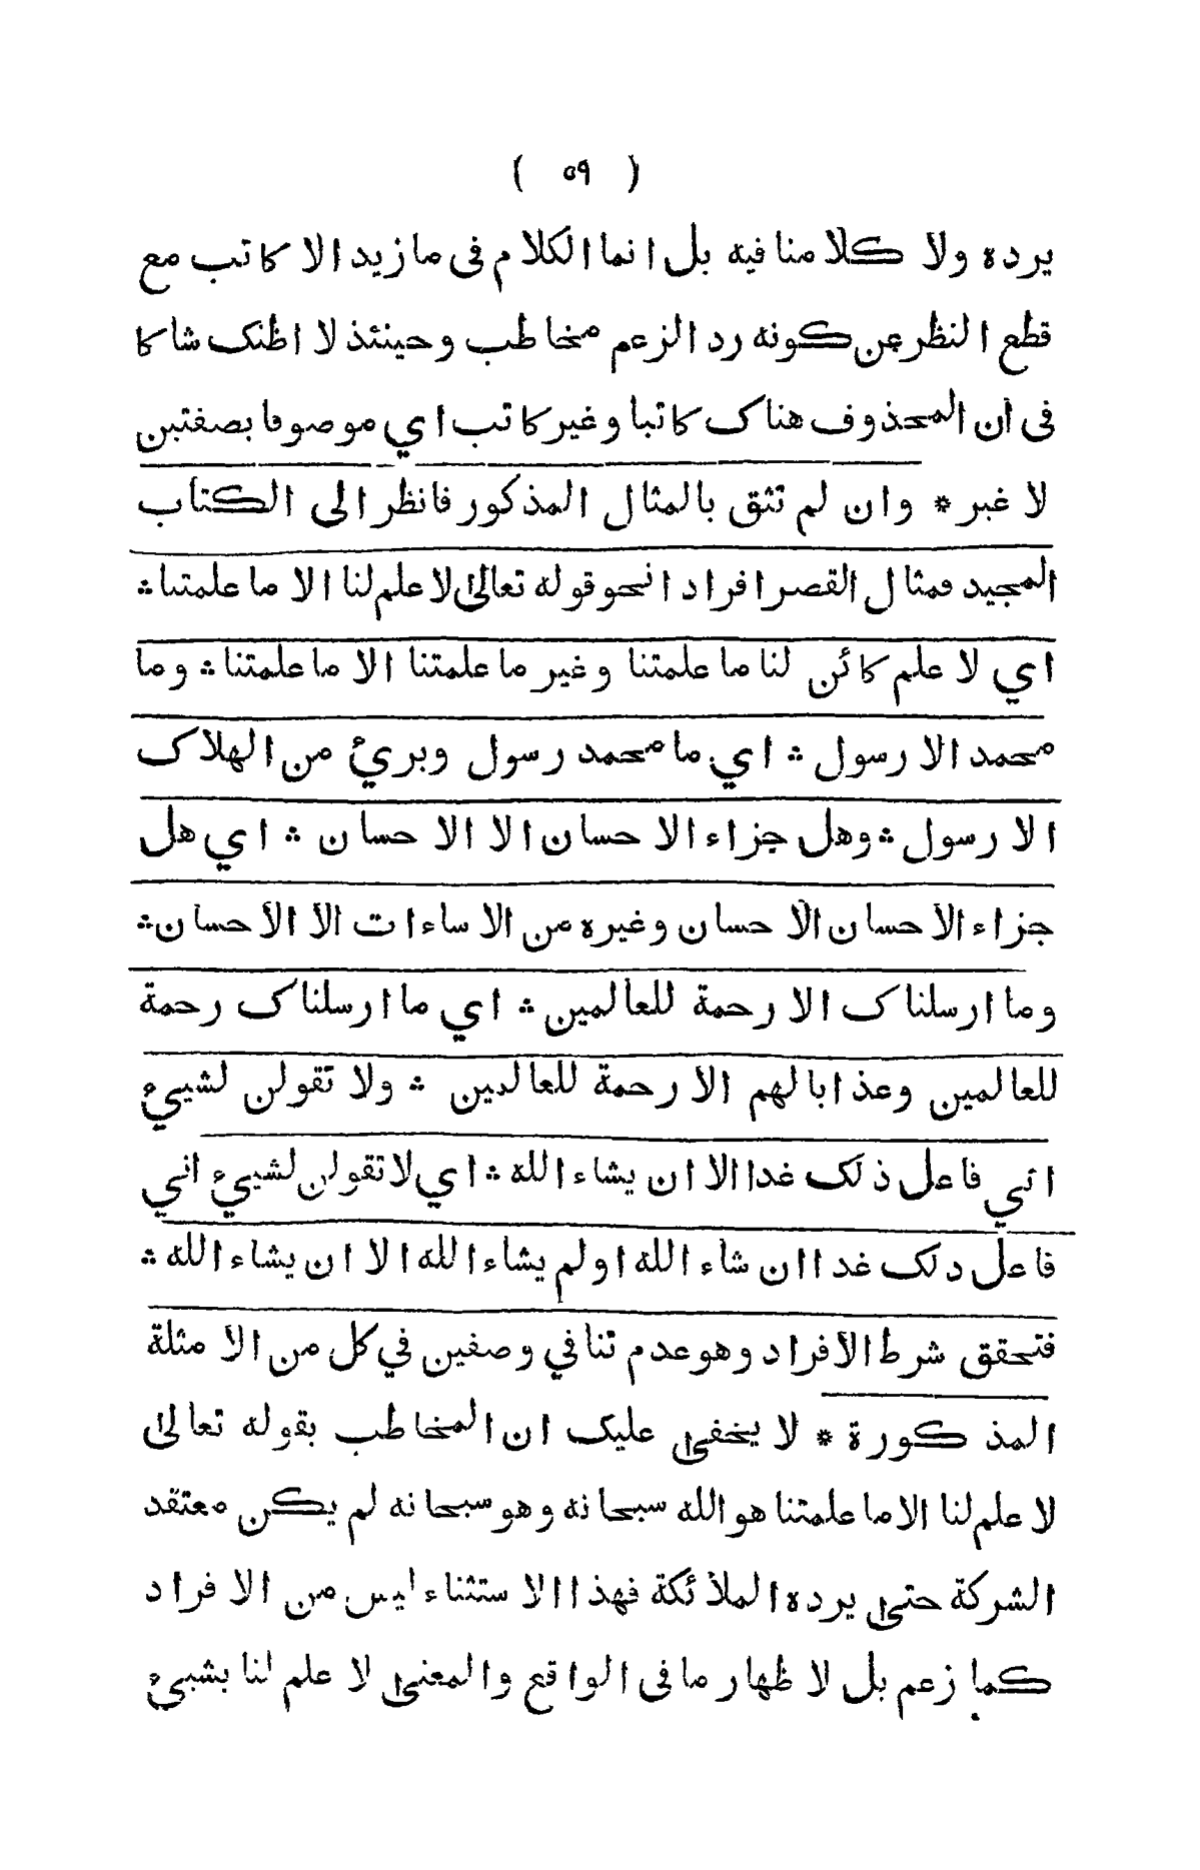 ( ٥٩ )
يرده ولا كلا منافيه بل انما الكلام فى ما زيد الا كاتب مع
قطع النظر عن كونه رد الزعم مخاطب وحينئذ لا اظنك شاكا
فى ان المحذوف هناك كاتبا وغير كاتب اي موصوفا بصفتين
لا غير * وان لم تثق بالمثال المذكور فانظر الى الكتاب
المجيد فمثال القصر افرادا نحو قوله تعالىٰ لا علم لنا الا ما علمتنا ؞
اي لا علم كائن لنا ما علمتنا وغير ما علمتنا الا ما علمتنا ؞ وما
محمد الا رسول ؞ اي ما محمد رسول وبرئ من الهلاك
الا رسول ؞ وهل جزاء الاحسان الا الاحسان ؞ اي هل
جزاء الاحسان الاحسان وغيره من الاساءات الا الاحسان ؞
وما ارسلناك الا رحمة للعالمين ؞ اي ما ارسلناك رحمة
للعالمين وعذابا لهم الا رحمة للعالمين ؞ ولا تقولن لشييء
اني فاعل ذلك غدا الا ان يشاء الله ؞ اي لا تقولن لشييء اني
فاعل دلك غدا ان شاء الله او لم يشاء الله الا ان يشاء الله ؞
فتحقق شرط الافراد وهو عدم تنافي وصفين في كل من الامثلة
المذكورة * لا يخفىٰ عليك ان المخاطب بقوله تعالىٰ
لا علم لنا الا ما علمتنا هو الله سبحانه وهو سبحانه لم يكن معتقد
الشركة حتىٰ يرده الملائكة فهذا الاستثناء ليس من الافراد
كما زعم بل لاظهار ما فى الواقع والمعنىٰ لا علم لنا بشييء